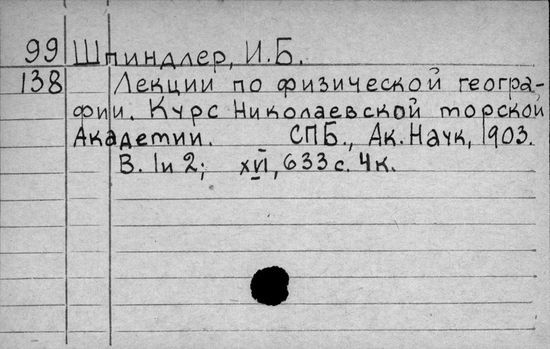 99 Шпиндлер, И.Б.
138 Лекции по физической геогра-
фии. Курс Николаевской морской
Академии. СПБ., Ак. Наук, 1903.
В. 1 и 2; XVI, 633 с. 4 к.